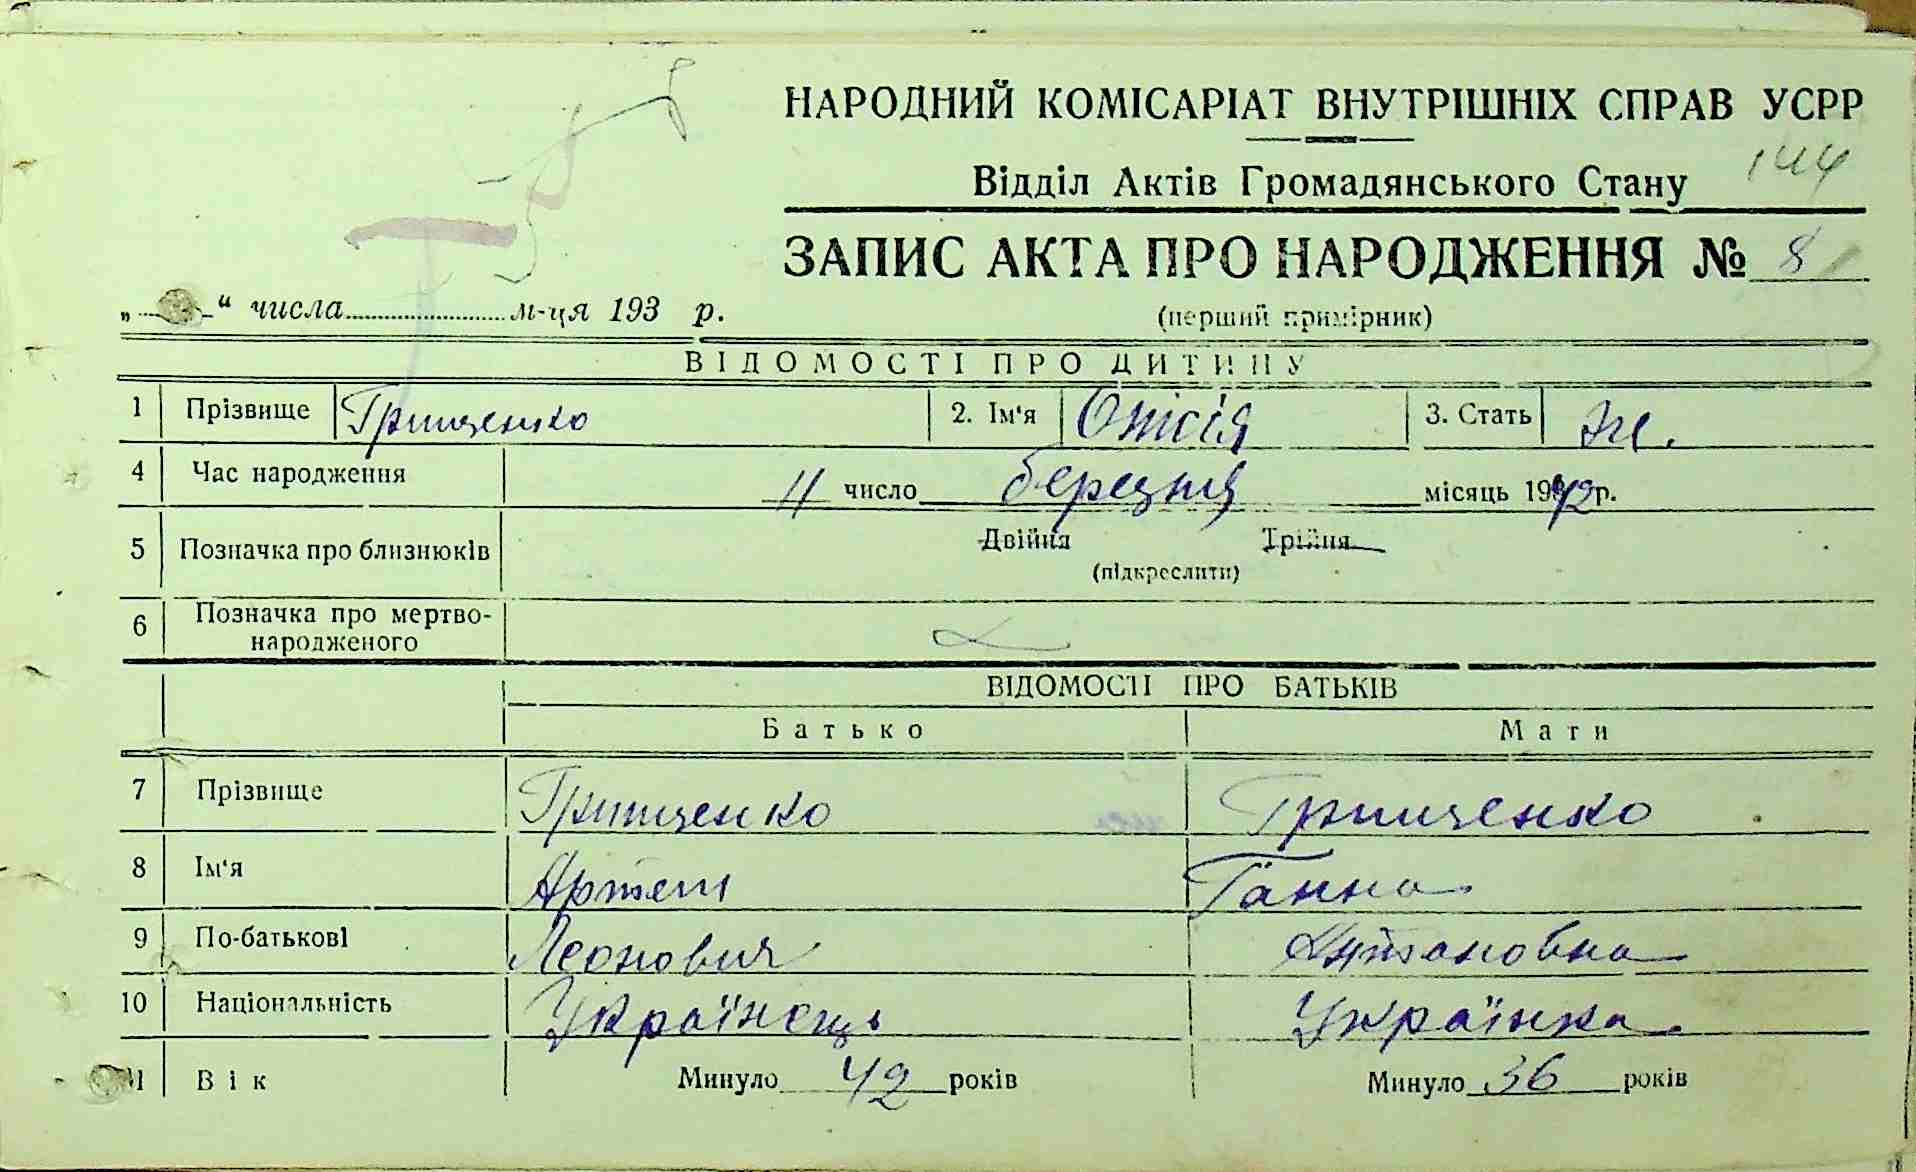 НАРОДНИЙ КОМІСАРІАТ ВНУТРІШНІХ СПРАВ УСРР
144
Відділ Актів Громадянського Стану
ЗАПИС АКТА ПРО НАРОДЖЕННЯ № 8
„ “ числа м-ця 193 р.
(перший примірник)
ВІДОМОСТІ ПРО ДИТИНУ
1 Прізвище Грищенко 2. Ім'я 3. Стать ж.
4 Час народження 11 число березня місяць 1942 р.
5 Позначка про близнюків Двійня Трійня
(підкреслити)
6 Позначка про мертво-
народженого
ВІДОМОСТІ ПРО БАТЬКІВ
Батько Мати
7 Прізвище Грищенко Грищенко
8 Ім'я Артем Ганна
9 По-батькові Леонович Антоновна
10 Національність Українець Українка
11 Вік Минуло 42 років Минуло 36 років